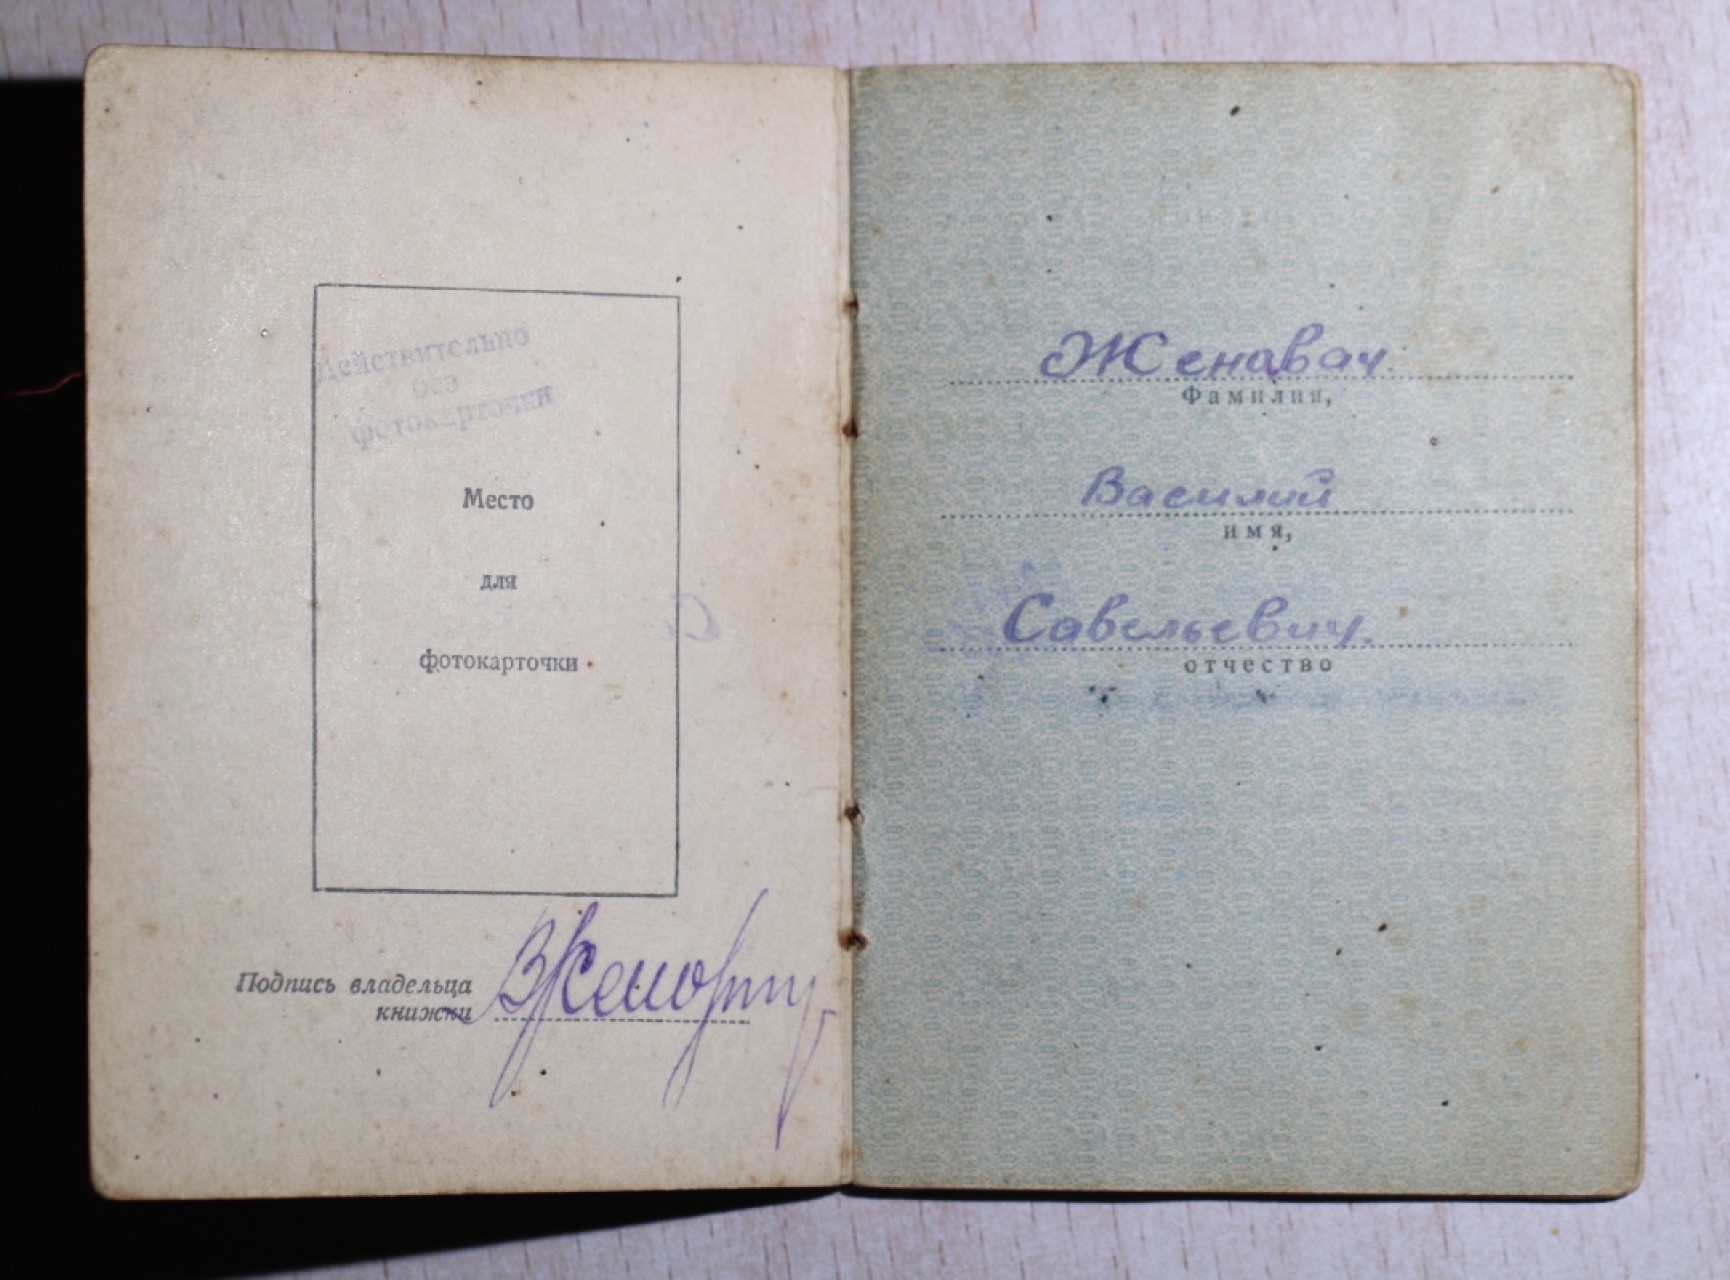 Действительно
без
фотокарточки
Место
для
фотокарточки
Подпись владельца
книжки
Женавач
Фамилия,
Василий
имя,
Савельевич.
отчество